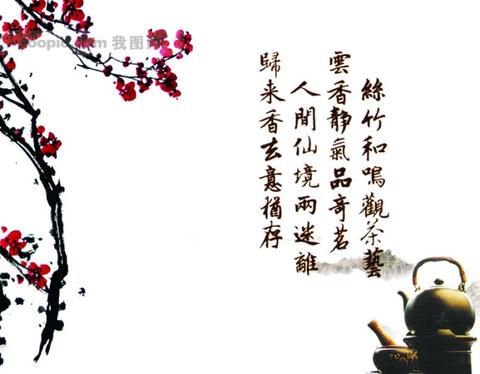 絲竹和鳴觀茶藝
雲香靜氣品奇茗
人間仙境兩迷離
歸来香玄意猶存
我图